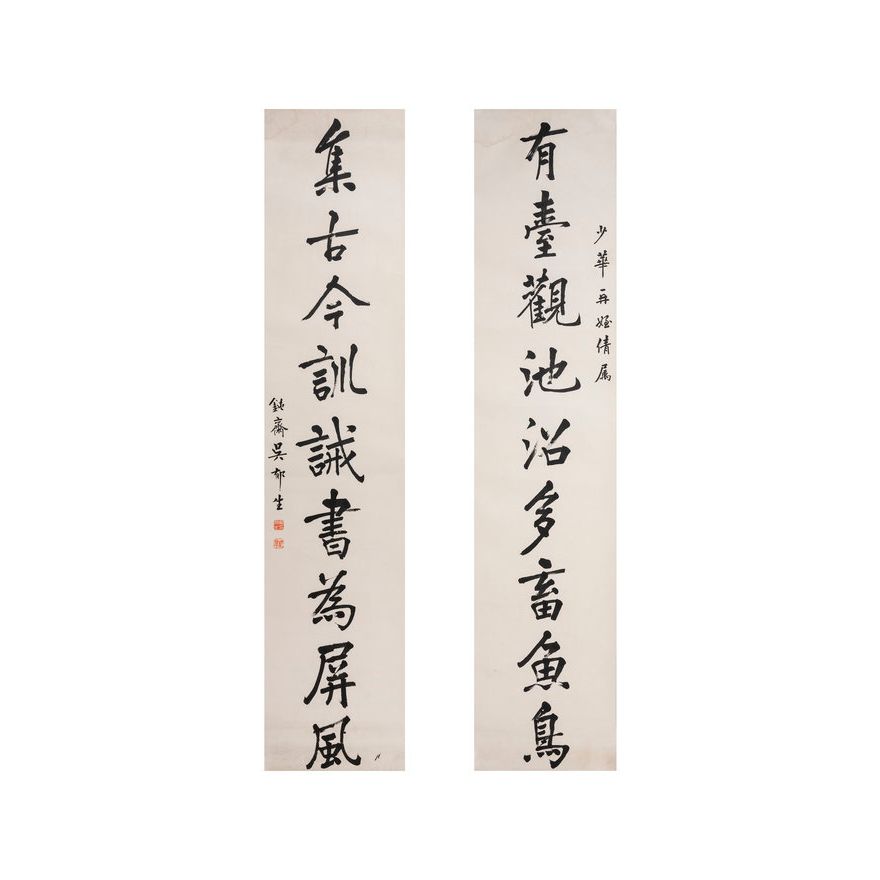 少華再姪倩属
有臺觀池沼多畜魚鳥
集古今訓誡書為屏風
鈍齋吳郁生